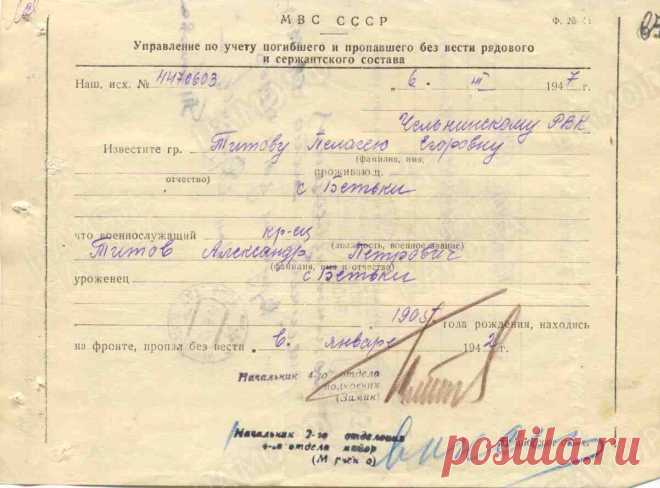 МВС СССР
Ф. №
Управление по учету погибшего и пропавшего без вести рядового
и сержантского состава
Наш, исх. № 4470603 6. III 1947 г.
Челнинскому РВК
Известите гр. Титову Пелагею Егоровну
(фамилия, имя,
отчество) проживающ.
с Бетьки
что военнослужащий кр-ец
(должность, военное звание)
Титов Александр Петрович
(фамилия, имя и отчества)
уроженец с Бетьки
года рождения, находясь
на фронте, пропал без вести в январе 1942 г.
Начальник 4-го отдела
подполк
(Замик)
Начальник 2-го отделения
4-го отдела майор
postila.ru